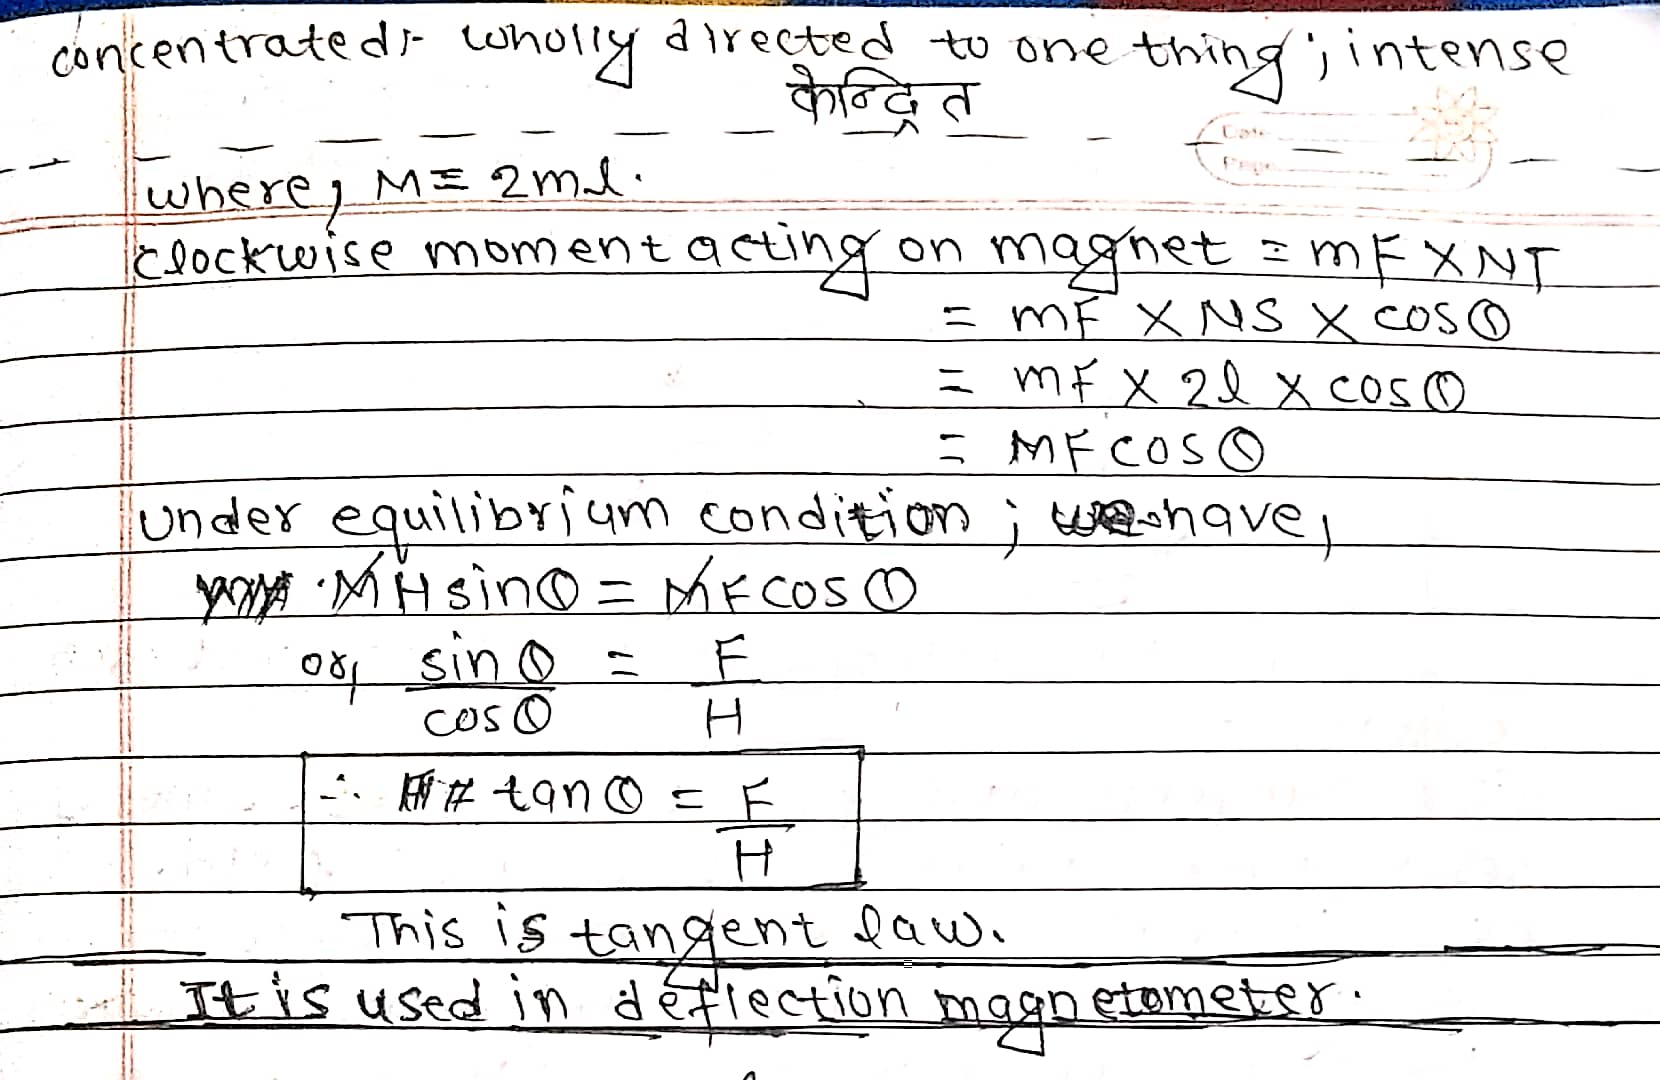 concentrated:- wholly directed to one thing; intense
केन्द्रित
Date
Page
where, M = 2ml.
clockwise moment acting on magnet = mF X NT
= mF X NS X cosθ
= mF X 2l X cosθ
= MF cosθ
Under equilibrium condition; we have,
MH sinθ = MF cosθ
or, sinθ/cosθ = F/H
∴ tanθ = F/H
This is tangent law.
It is used in deflection magnetometer.